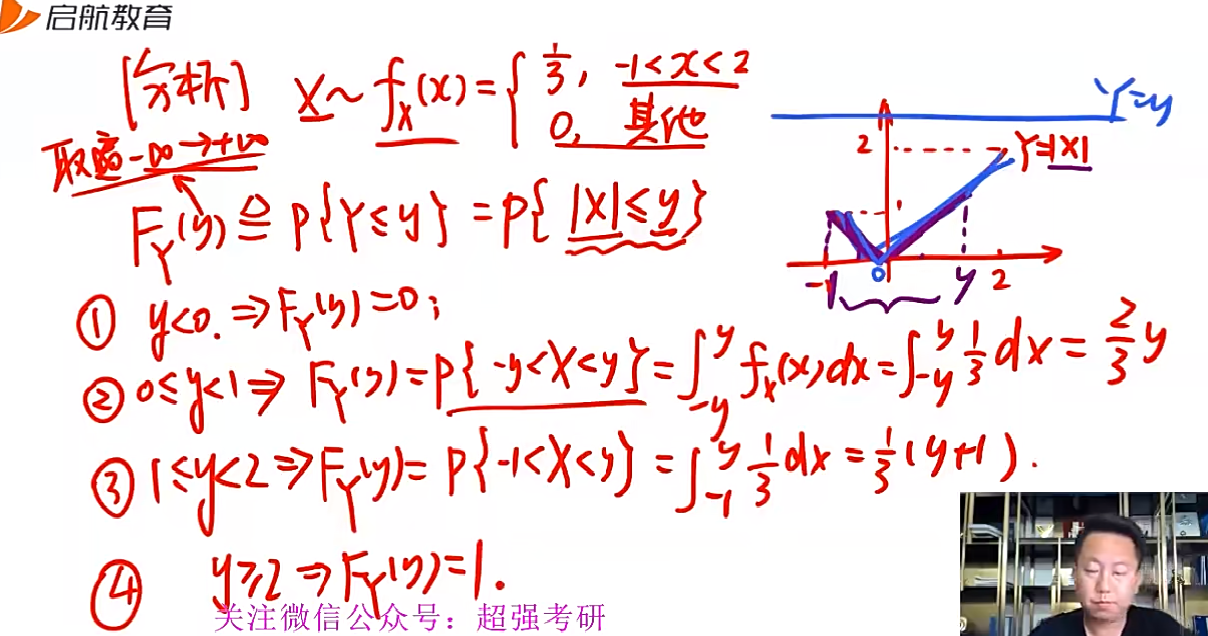 启航教育
[分析] X~f_X(x)={1/3, -1<x<2
0, 其他
取遍-∞→+∞
F_Y(y)≜P{Y≤y}=P{|X|≤y}
① y<0.⇒F_Y(y)=0;
② 0≤y<1⇒F_Y(y)=P{-y<X<y}=∫_{-y}^{y}f_X(x)dx=∫_{-y}^{y}1/3dx=2/3y
③ 1≤y<2⇒F_Y(y)=P{-1<X<y}=∫_{-1}^{y}1/3dx=1/3(y+1).
④ y≥2⇒F_Y(y)=1.
Y=y
2
Y=|X|
1
-1
0
y
2
关注微信公众号：超强考研